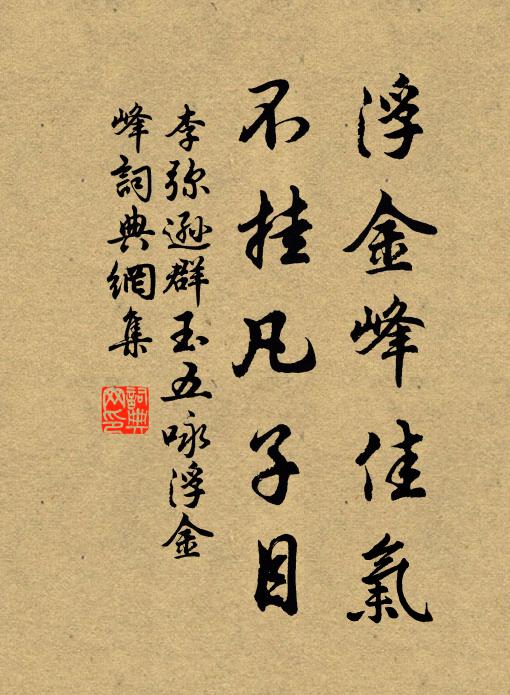 浮金峰佳氣
不挂凡子目
李弥遜群玉五咏浮金
峰詞典網集
詞典網印